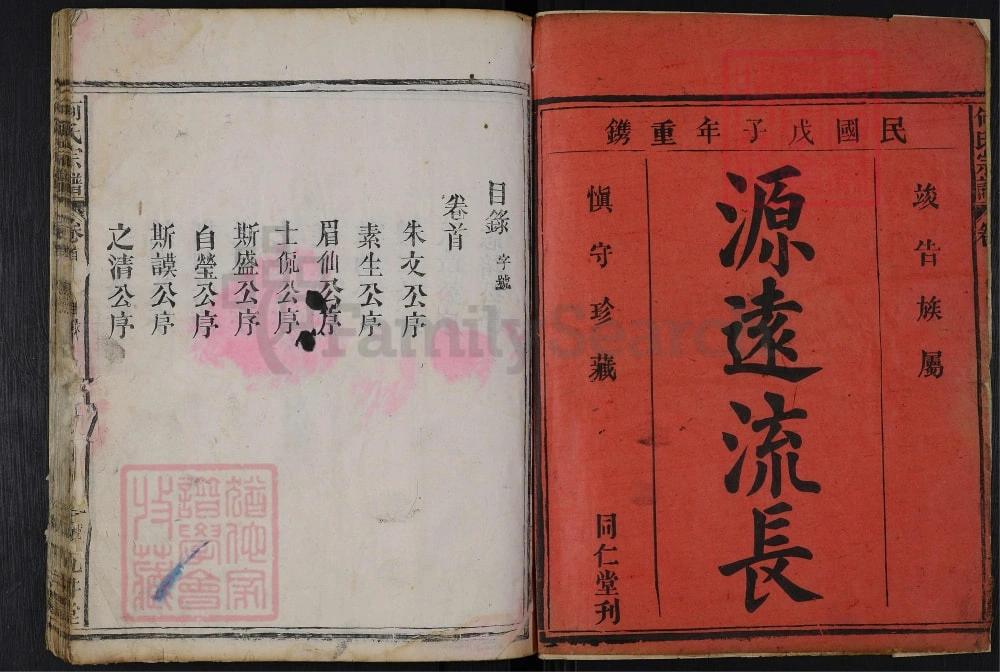 何氏宗譜
民國戊子年重鐫
竣告族屬
源遠流長
慎守珍藏
同仁堂刊
目錄 字號
卷首
朱文公序
素生公序
眉仙公序
士侃公序
斯盛公序
自瑩公序
斯謨公序
之清公序
何氏宗譜
卷首
FamilySearch
譜學會
收藏